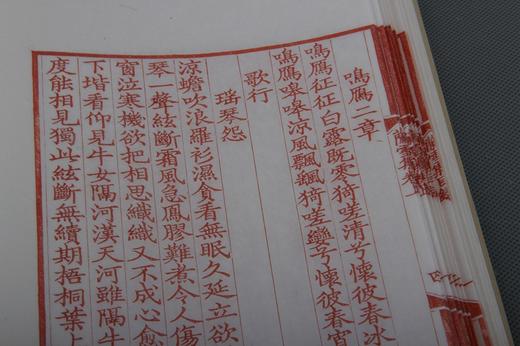 鳴鴈二章
鳴鴈征征白露既寒猗嗟清兮懷彼春冰
鳴鴈嗥嗥涼風飄飄猗嗟孌兮懷彼春宵
歌行
瑶琴怨
涼蟾吹浪羅衫濕貪看無眠久延立欲
琴一聲絃斷霜風急鳳膠難煮令人傷
窗泣寒機欲把相思織織又不成心愈
下堦看仰見牛女隔河漢天河雖隔牛
度能相見獨此絃斷無續期梧桐葉上